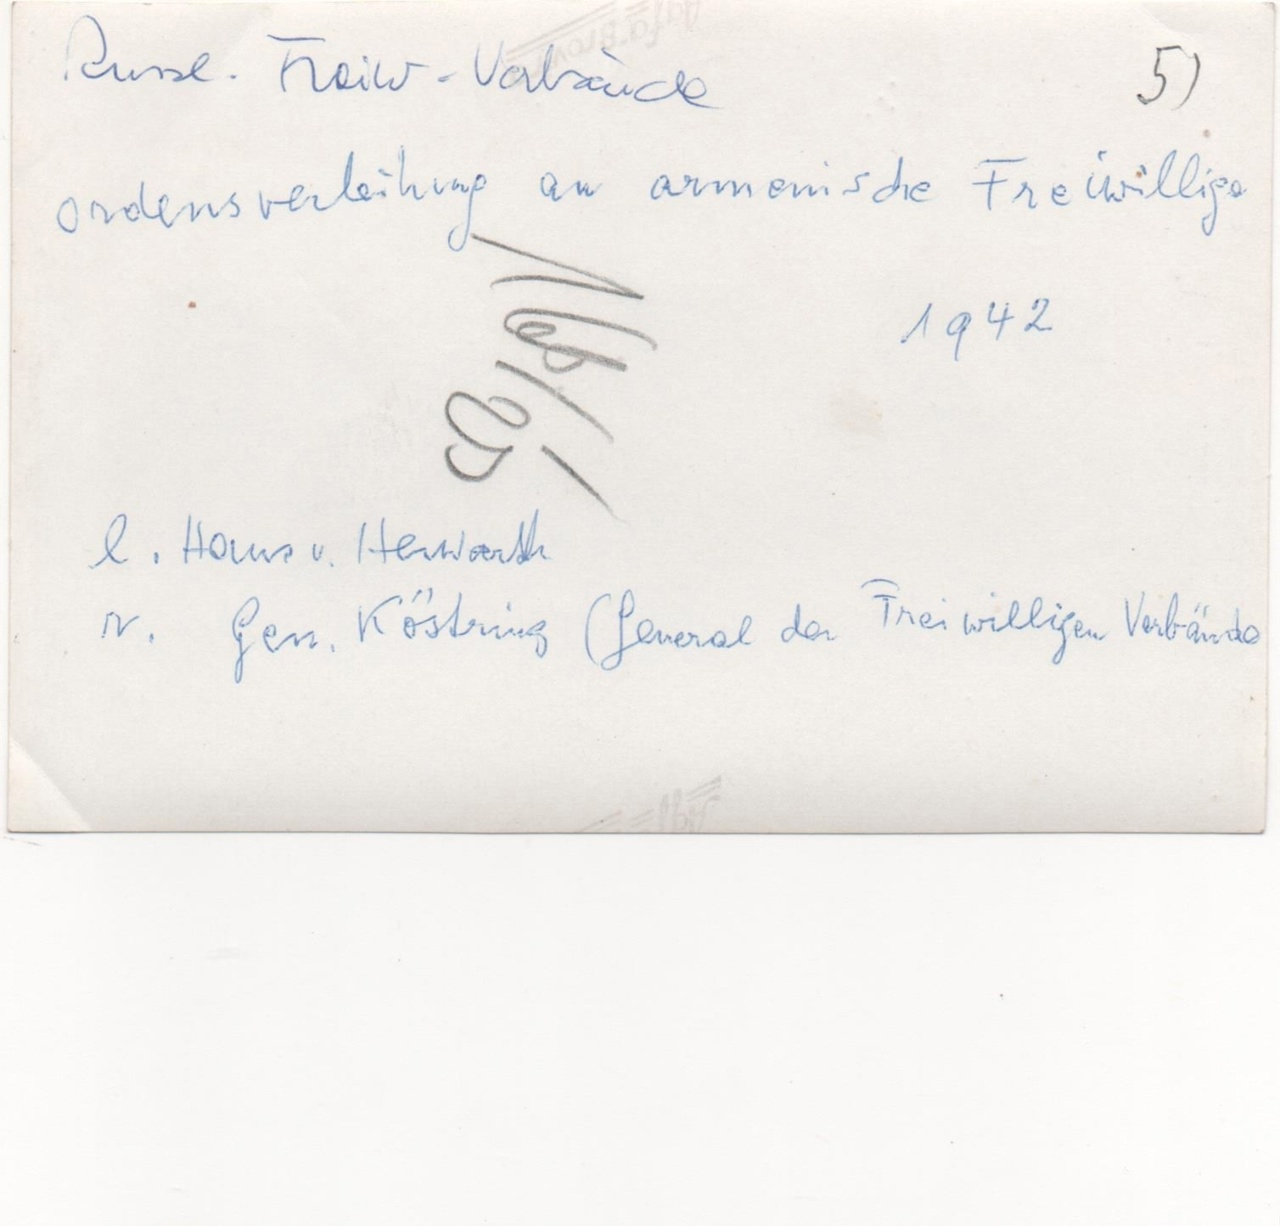 Russl. Freiw-Verbände
5)
Ordensverleihung an armenische Freiwillige
1942
l. Hans v. Herwarth
r. Gen. Köstring (General der Freiwilligen Verbände